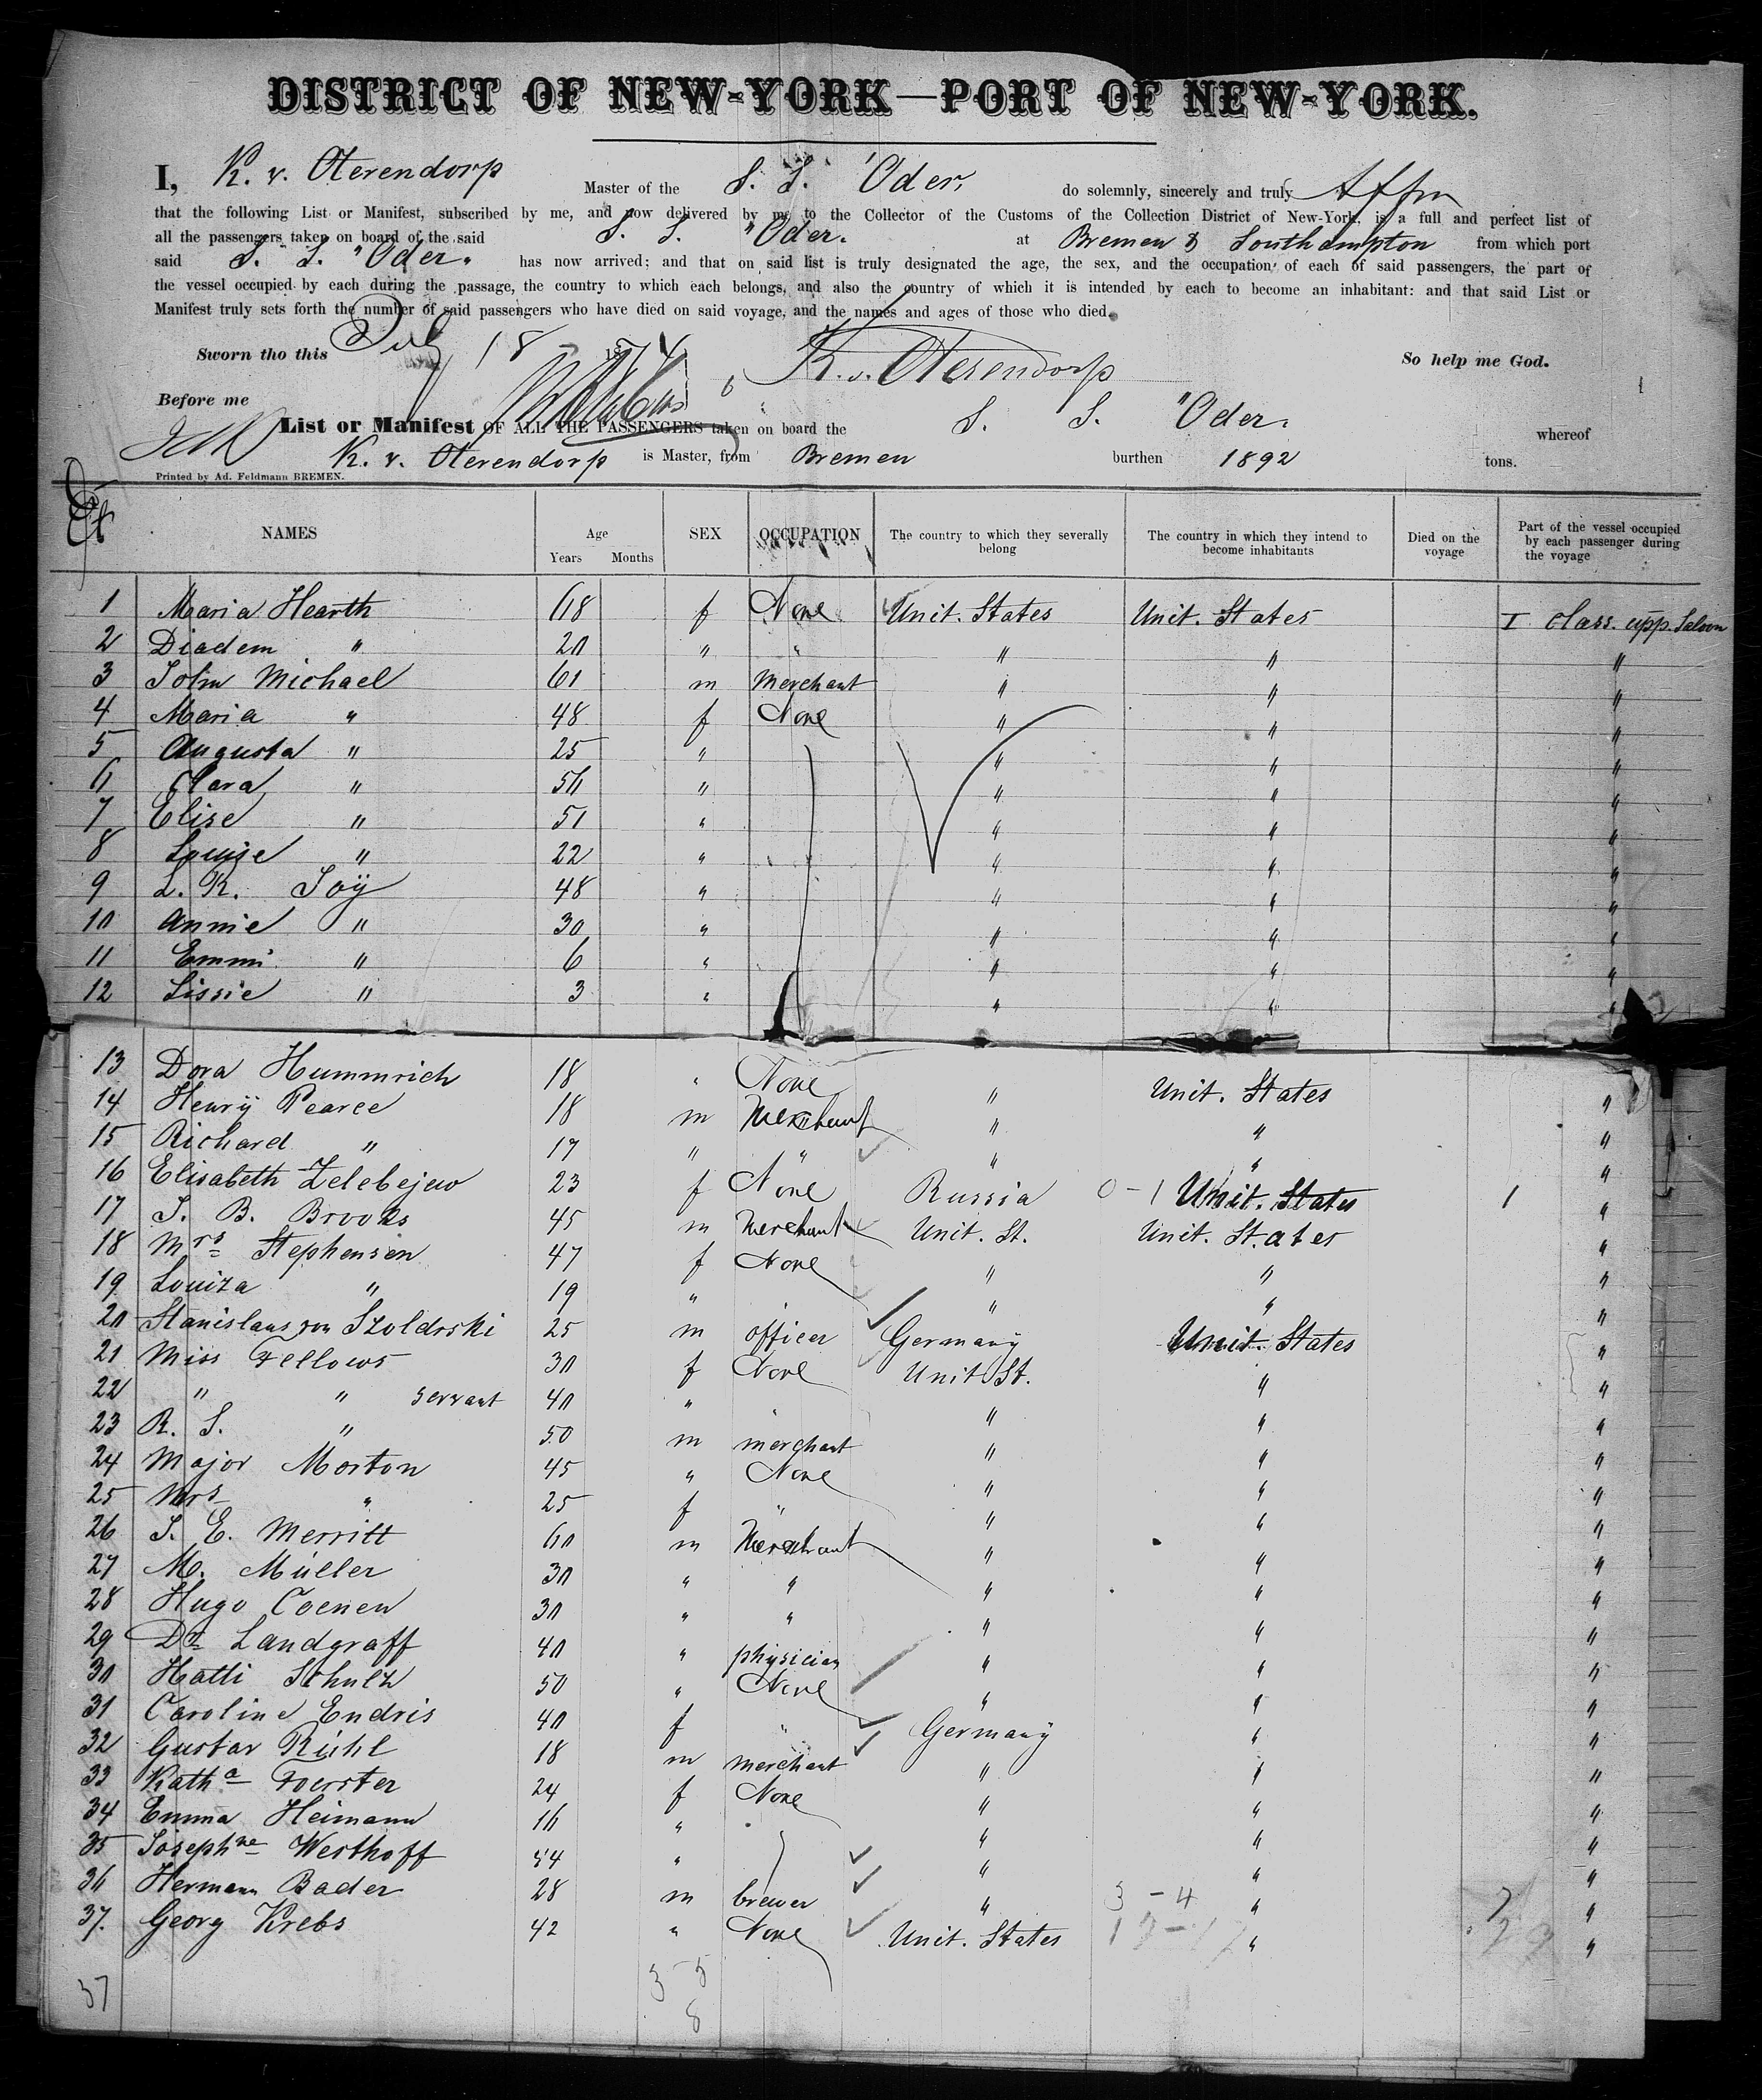 DISTRICT OF NEW-YORK—PORT OF NEW-YORK.
I, K. v. Oterendorp Master of the S. S. "Oder" do solemnly, sincerely and truly Affm
that the following List or Manifest, subscribed by me, and now delivered by me to the Collector of the Customs of the Collection District of New-York, is a full and perfect list of
all the passengers taken on board of the said S. S. "Oder. at Bremen & Southampton from which port
said S. S. "Oder" has now arrived; and that on said list is truly designated the age, the sex, and the occupation of each of said passengers, the part of
the vessel occupied by each during the passage, the country to which each belongs, and also the country of which it is intended by each to become an inhabitant: and that said List or
Manifest truly sets forth the number of said passengers who have died on said voyage, and the names and ages of those who died.
Sworn tho this July 18 1874 K. v. Oterendorp So help me God.
Before me
List or Manifest OF ALL THE PASSENGERS taken on board the S. S. "Oder. whereof
K. v. Oterendorp is Master, from Bremen burthen 1892 tons.
Printed by Ad. Feldmann BREMEN.
NAMES Age Years Months SEX OCCUPATION The country to which they severally belong The country in which they intend to become inhabitants Died on the voyage Part of the vessel occupied by each passenger during the voyage
1 Maria Hearth 68 f None Unit. States Unit. States I class. upp. Saloon
2 Diadem " 20 " " " " "
3 John Michael 61 m Merchant " " "
4 Maria " 48 f None " " "
5 Augusta " 25 " " " "
6 Clara " 56 " " " "
7 Elise " 51 " " " "
8 Louise " 22 " " " "
9 L. R. Joÿ 48 " " " "
10 Annie " 30 " " " "
11 Emmi " 6 " " " "
12 Lissie " 3 " " " "
13 Dora Hummrich 18 " None " Unit. States "
14 Henrÿ Pearce 18 m Merchant " " "
15 Richard " 17 " " " " "
16 Elisabeth Zelebejew 23 f None Russia 0-1 Unit. States 1 "
17 J. B. Brooks 45 m Merchant Unit. St. Unit. States "
18 Mrs Stephensen 47 f None " " "
19 Louiza " 19 " " " "
20 Stanislaus von Szoldrski 25 m officer Germanÿ Unit. States "
21 Miss Fellows 30 f None Unit St. " "
22 " " servant 40 " " " " "
23 R. S. " 50 m merchant " " "
24 Major Morton 45 " None " " "
25 Mrs " 25 f " " " "
26 J. E. Merritt 60 m Merchant " " "
27 M. Müller 30 " " " " "
28 Hugo Coenen 30 " " " " "
29 Dr Landgraff 40 " physician " " "
30 Hatti Schultz 50 " None " " "
31 Caroline Endris 40 f " Germanÿ " "
32 Gustav Rühl 18 m merchant " " "
33 Katha Foerster 24 f None " " "
34 Emma Heimann 16 " " " " "
35 Josephne Westhoff 54 " " " "
36 Hermann Bader 28 m brewer " 3-4 " "
37. Georg Krebs 42 " None Unit. States " "
37 3 5
8